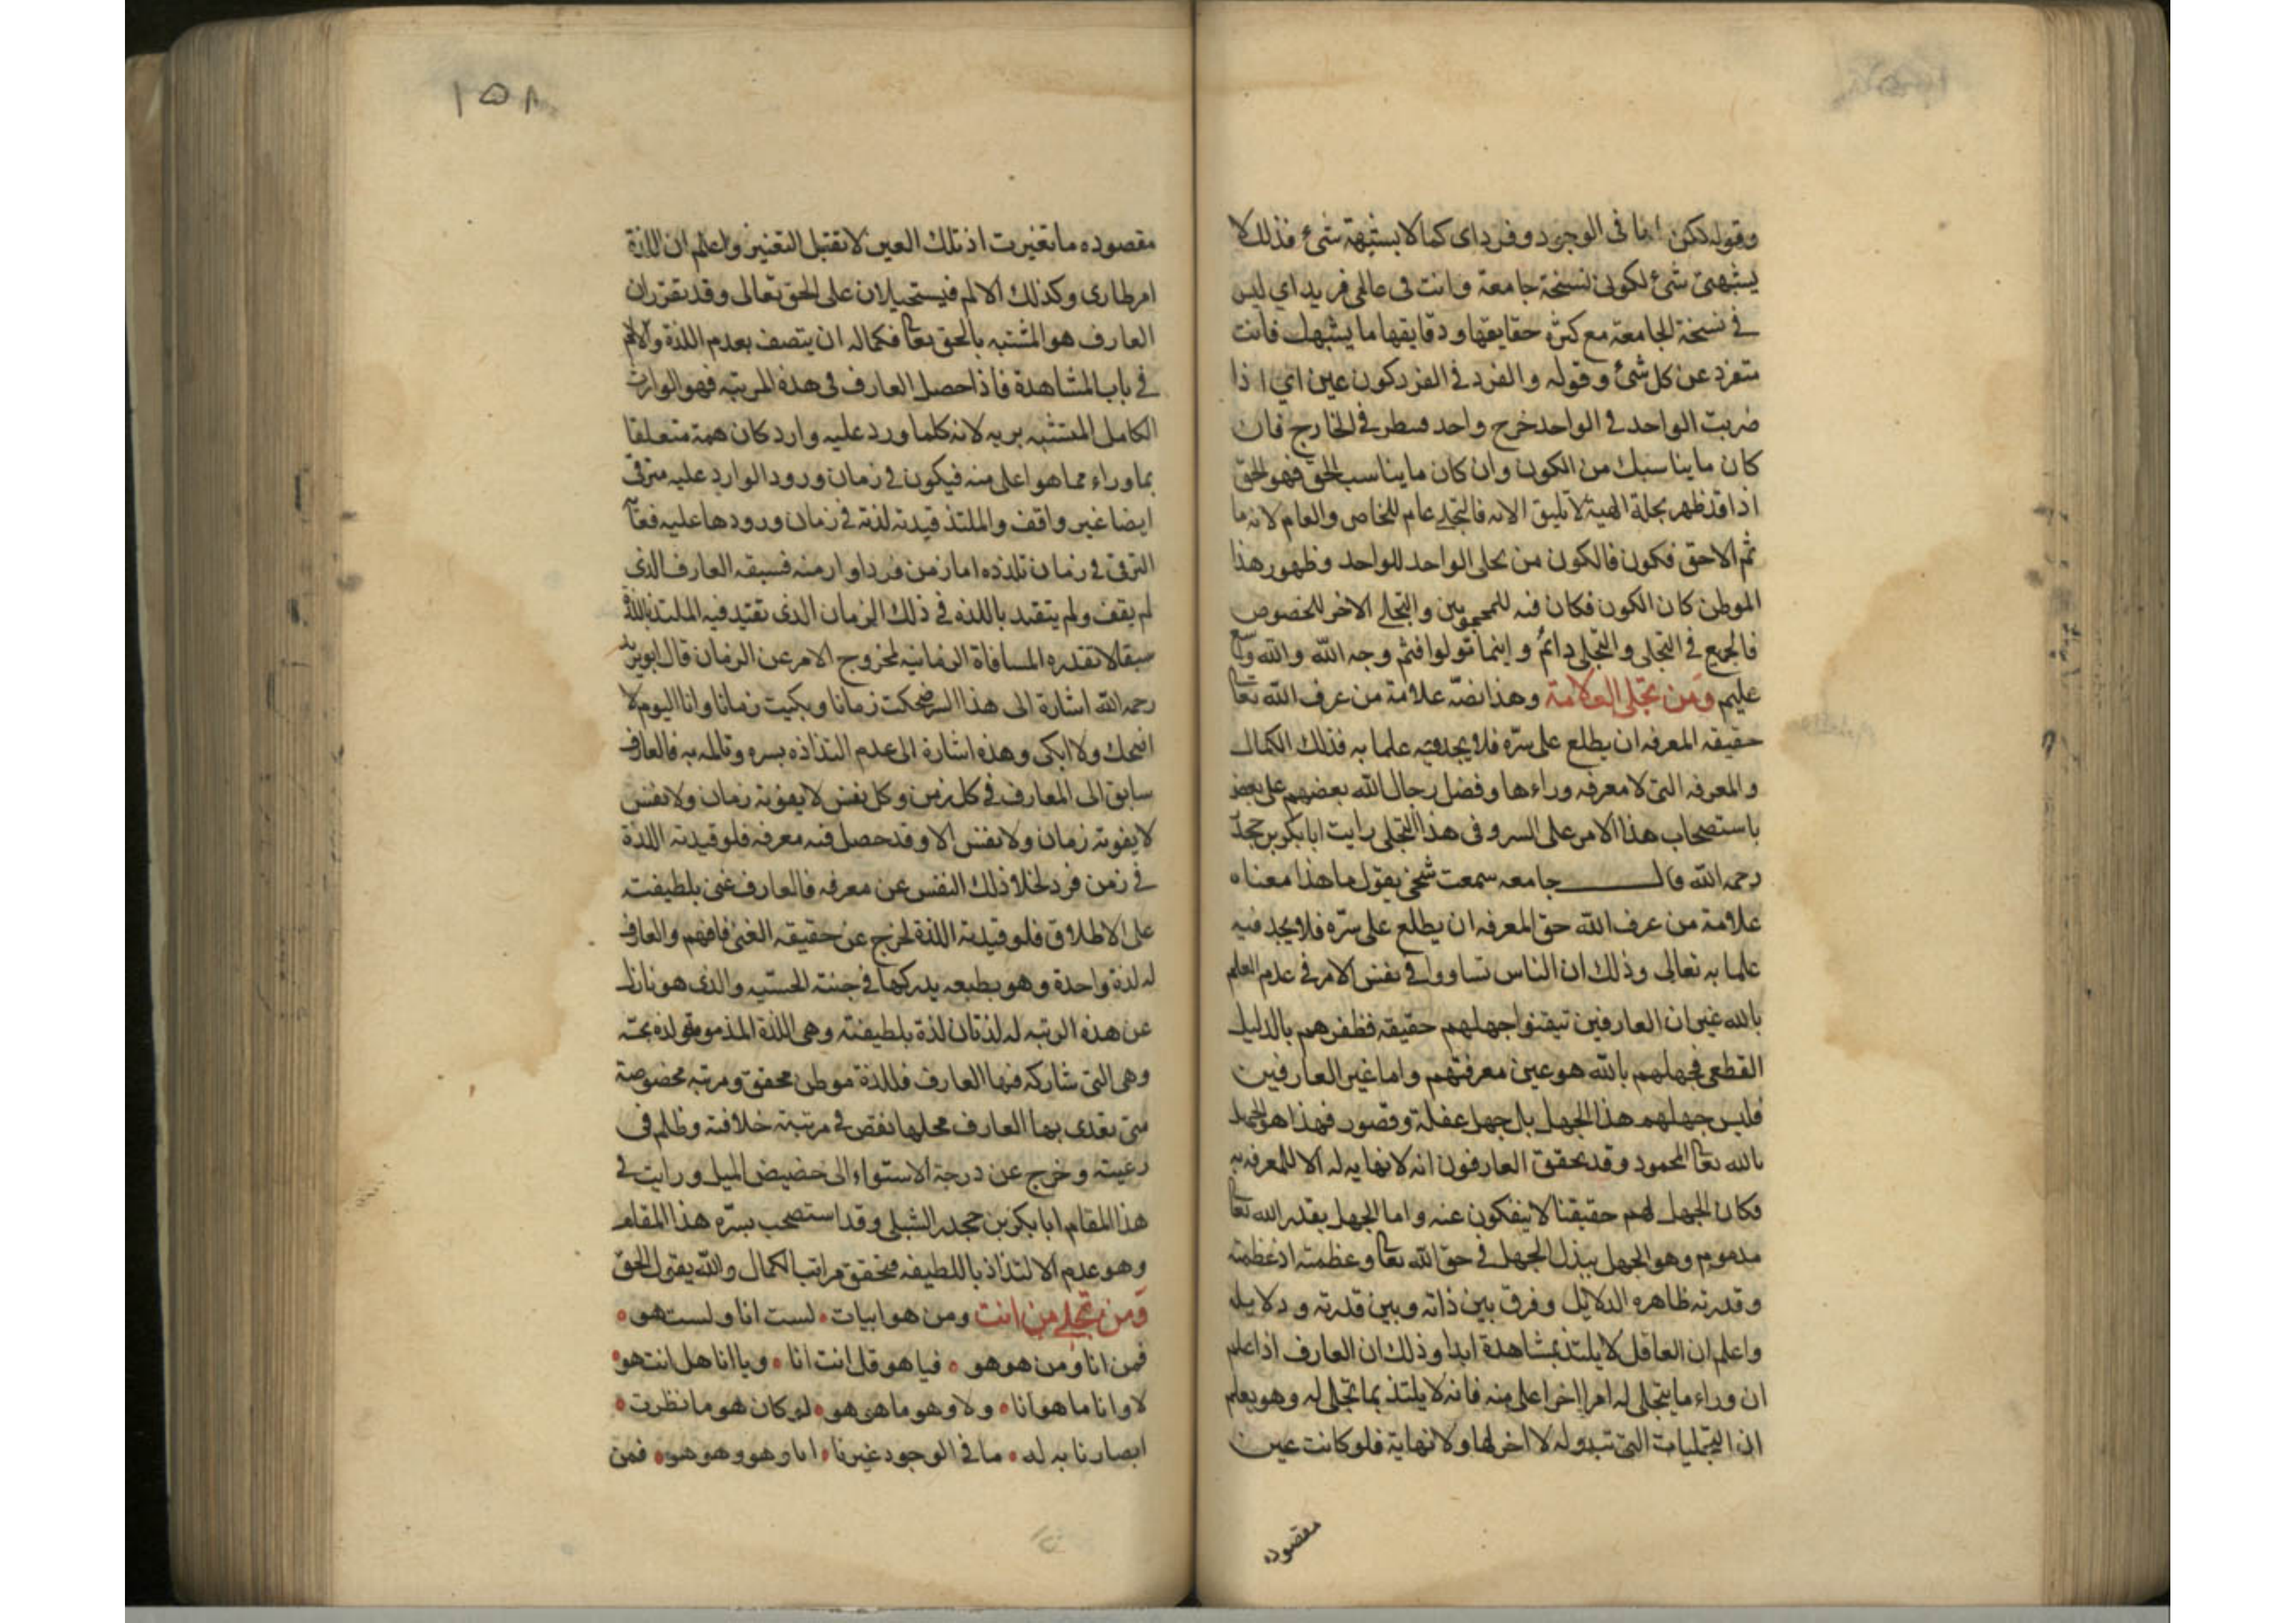 وقوله لكن انا في الوجود وفرد اى كما لا يشبهه شئ فذلك لا
يشبهنى شئ لكونى نسخة جامعة وانت فى عالمى فريد اي ليس
في نسخة الجامعة مع كثرة حقايقها ودقايقها ما يشبهك فانت
متفرد عن كل شئ وقوله والفرد في الفرد كون عين اي اذا
ضربت الواحد في الواحد خرج واحد فسطر في الخارج فان
كان ما يناسبك من الكون وان كان ما يناسب الحق فهو الحق
اذا قد ظهر بحلة الهية لا تليق الا به فالتجلي عام للخاص والعام لانه ما
ثم الا حق فكون فالكون من تجلى الواحد للواحد وظهور هذا
الموطن كان الكون فكان فيه للمحجوبين والتجلي الاخر للخصوص
فالجميع في التجلى والتجلى دائم واينما تولوا فثم وجه الله والله واسع
عليم ومن تجلى العلامة وهذا نصه علامة من عرف الله تعا
حقيقه المعرفه ان يطلع على سره فلا يجد فيه علما به فذلك الكمال
والمعرفه التى لا معرفه وراءها وفضل رجال الله بعضهم على بعض
باستصحاب هذا الامر على السر وفى هذا التجلى رايت ابا بكر بن جحدر
رحمه الله قال جامعه سمعت شيخي يقول ما هذا معناه
علامة من عرف الله حق المعرفه ان يطلع على سره فلا يجد فيه
علما به تعالى وذلك ان الناس تساووا في نفس الامر في عدم العلم
بالله غير ان العارفين تيقنوا جهلهم حقيقه فظفرهم بالدليل
القطعى فجهلهم بالله هو عين معرفتهم واما غير العارفين
فليس جهلهم هذا الجهل بل جهل غفلة وقصور فهذا هو الجهل
بالله تعا المحمود وقد تحقق العارفون انه لا نهايه له الا للمعرفه به
فكان الجهل لهم حقيقتا لا ينفكون عنه واما الجهل بقدر الله تعا
مذموم وهو الجهل ببذل الجهل في حق الله تعا وعظمته اذ عظمته
وقدرته ظاهره الدلائل وفرق بين ذاته وبين قدرته ودلايله
واعلم ان العاقل لا يلتذ بمشاهدة ابدا وذلك ان العارف اذا علم
ان وراء ما يتجلى له امرا اخر اعلى منه فانه لا يلتذ بما تجلى له وهو يعلم
ان التجليات التى تبدو له لا اخر لها ولا نهاية فلو كانت عين
مقصوده
١٥٨
مقصوده ما تغيرت اذ تلك العين لا تقبل التغيير واعلم ان اللذة
امر طارى وكذلك الالم فيستحيلان على الحق تعالى وقد تقرر ان
العارف هو المتشبه بالحق تعا فكماله ان يتصف بعدم اللذة والالم
في باب المشاهدة فاذا حصل العارف فى هذه المرتبه فهو الوارث
الكامل المتشبه بربه لانه كلما ورد عليه وارد كان همه متعلقا
بما وراء مما هو اعلى منه فيكون في زمان ورود الوارد عليه مترقى
ايضا غير واقف والملتذ قيدته لذته في زمان ورودها عليه ففاته
الترقى في زمان تلذذه اما زمن فرد او ازمنه فسبقه العارف الذى
لم يقف ولم يتقيد باللذه في ذلك الزمان الذى تقيد فيه الملتذ باللذة
سبقا لا تقدره المسافاة الزمانيه لخروج الامر عن الزمان قال ابو يزيد
رحمه الله اشارة الى هذا السر ضحكت زمانا وبكيت زمانا وانا اليوم لا
اضحك ولا ابكى وهذه اشارة الى عدم التذاذه بسره وتالمه به فالعارف
سابق الى المعارف في كل زمن وكل نفس لا يفوته زمان ولا نفس
لا يفوته زمان ولا نفس الا وقد حصل فيه معرفه فلو قيدته اللذة
في زمن فرد لخلا ذلك النفس عن معرفه فالعارف غنى بلطيفته
على الاطلاق فلو قيدته اللذة لخرج عن حقيقه الغنى فافهم والعارف
له لذة واحدة وهو بطبعه يدركها في جنته الحسيه والذى هو نازل
عن هذه الرتبه له لذتان لذة بلطيفته وهى اللذة المذمومة ولذه
وهى التى شاركه فيها العارف فللذة موطن محقق ومرتبه مخصوصة
متى تعدى بها العارف محلها نقص في مرتبته خلافته وظلم فى
رعيته وخرج عن درجة الاستواء الى حضيض الميل ورايت في
هذا المقام ابا بكر بن جحدر الشبلى وقد استصحب بسره هذا المقام
وهو عدم الالتذاذ باللطيفه فتحقق مراتب الكمال والله يقول الحق
ومن تجلى من انت ومن هو ابيات • لست انا ولست هو •
فمن انا ومن هو هو • فيا هو قل انت انا • ويا انا هل انت هو •
لا وانا ما هو انا • ولا وهو ما هو هو • لو كان هو ما نظرت •
ابصارنا به له • ما في الوجود غيرنا • انا وهو وهو هو • فمن